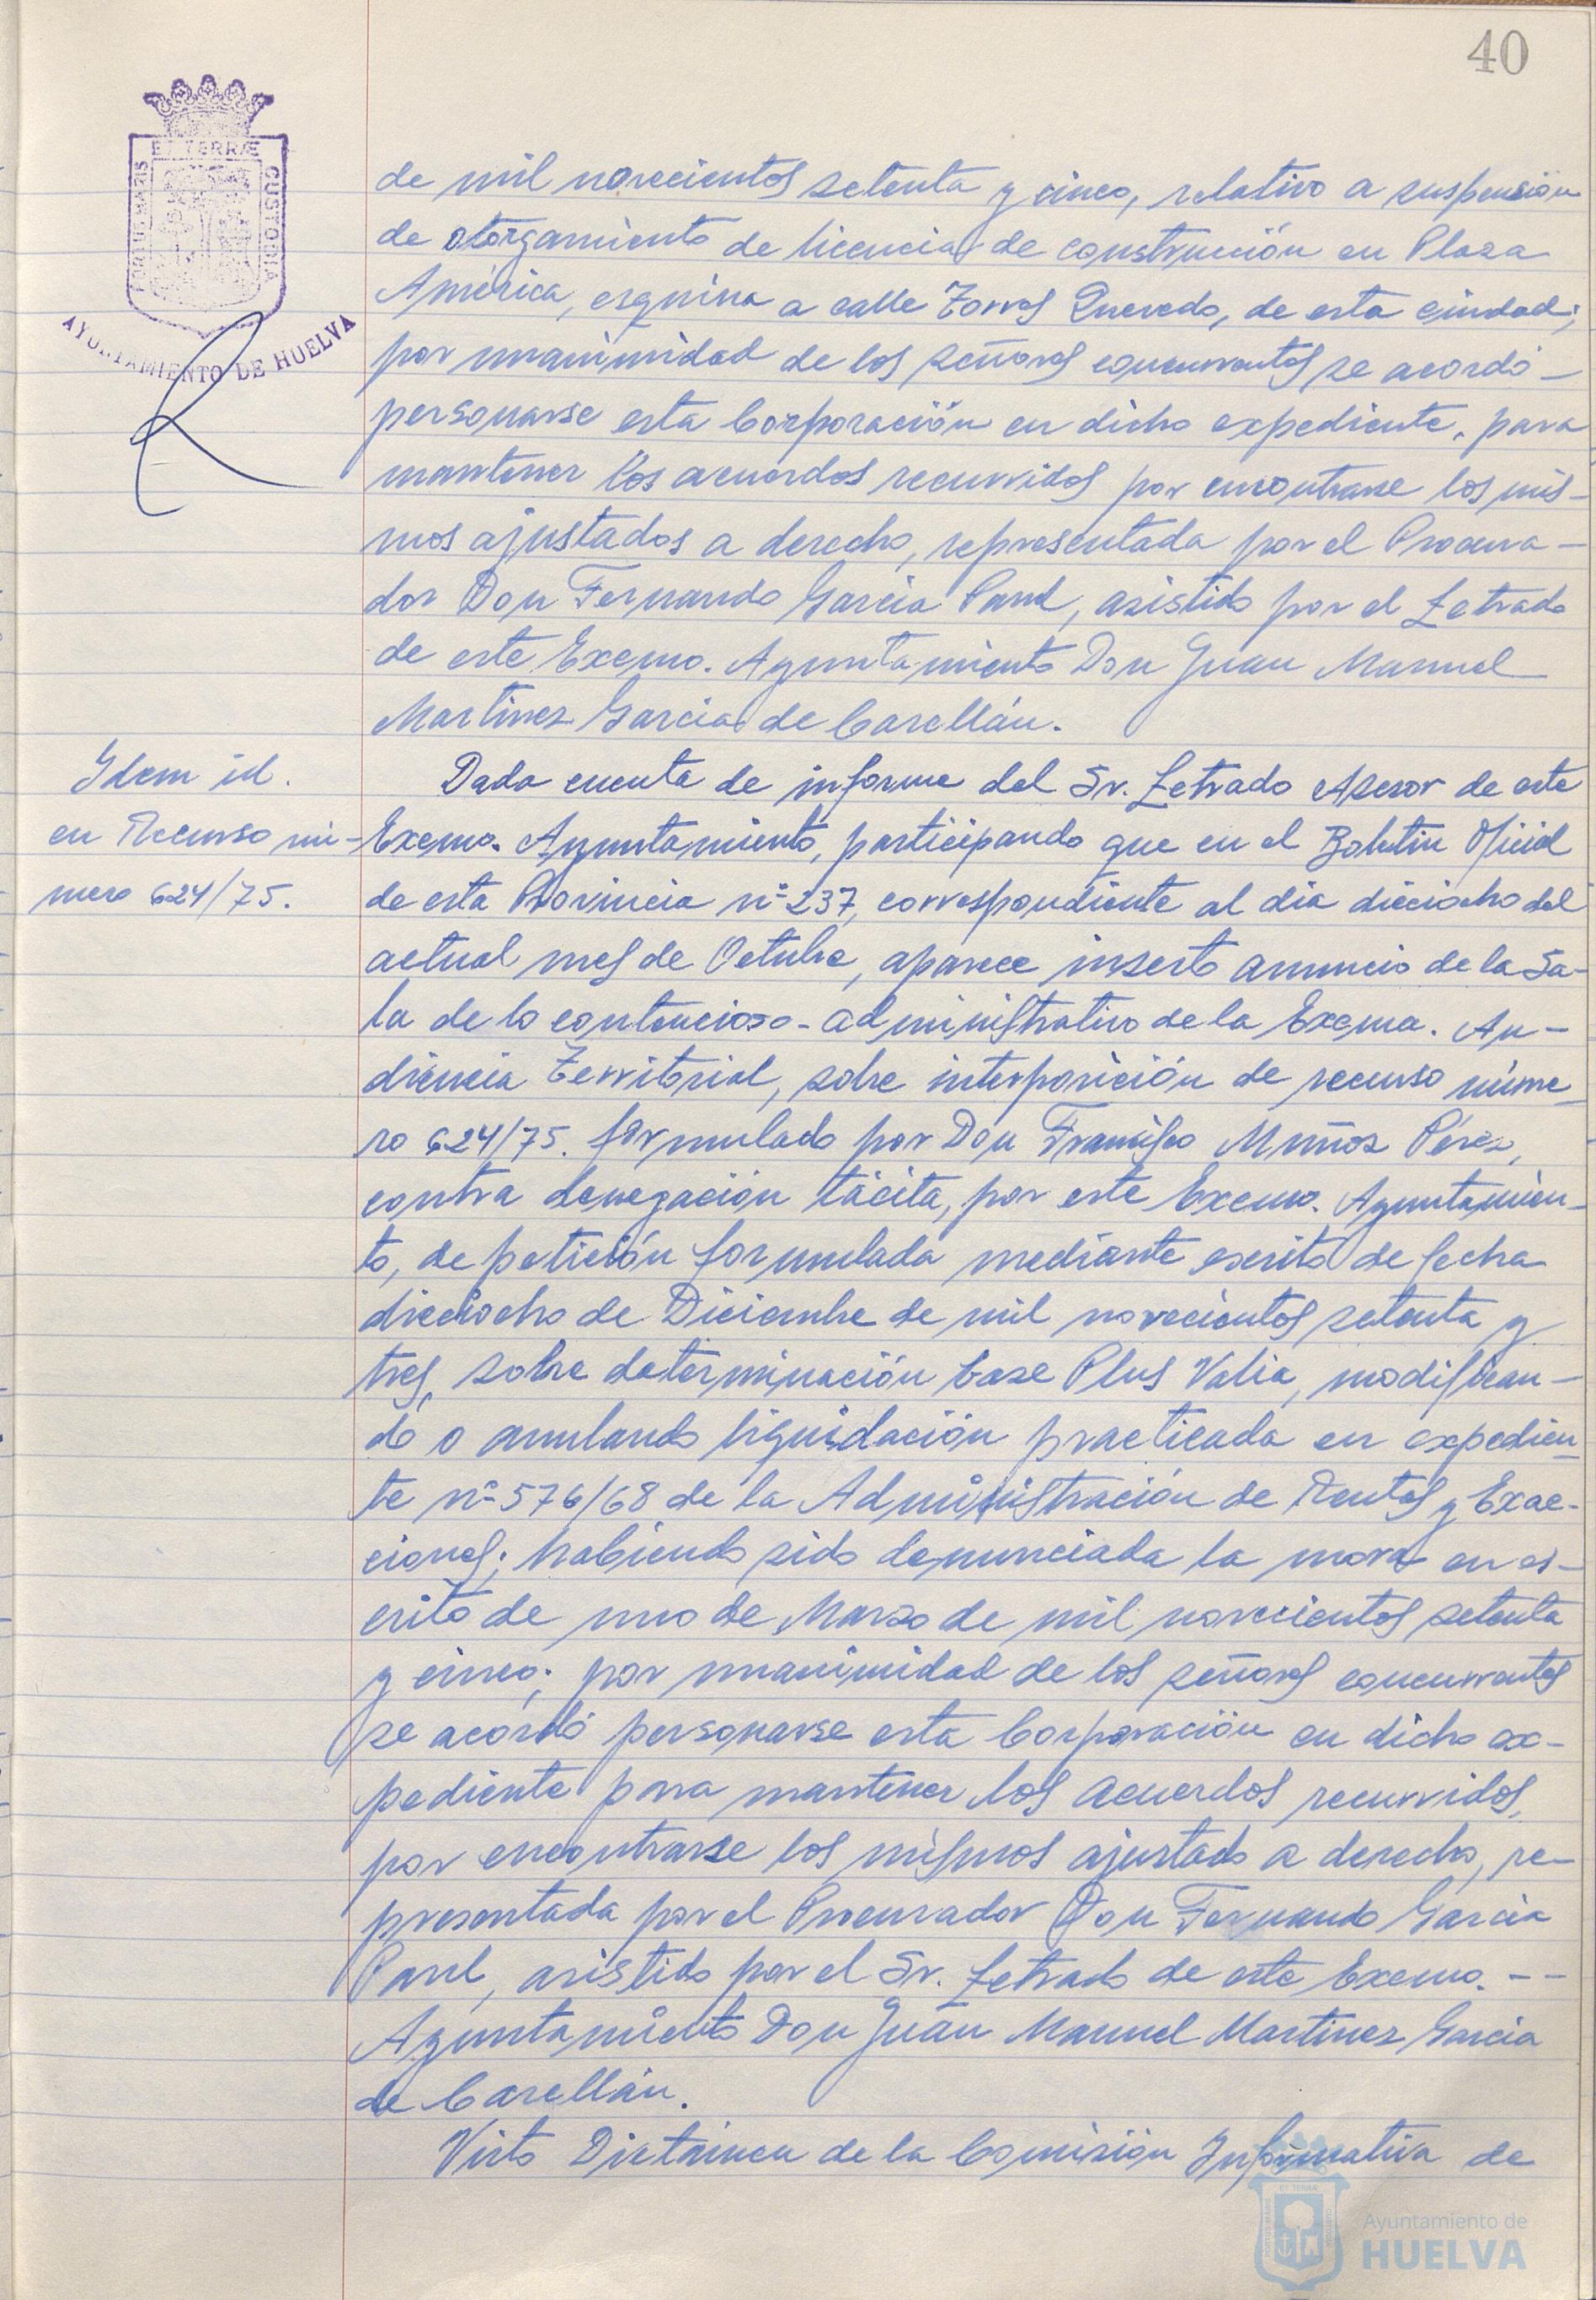 40
ET TERRÆ
PORTUS MARIS
CUSTODIA
AYUNTAMIENTO DE HUELVA
de mil novecientos setenta y cinco, relativo a suspensión
de otorgamiento de licencia de construcción en Plaza
América, esquina a calle Torres Quevedo, de esta ciudad;
por unanimidad de los señores concurrentes se acordó -
personarse esta Corporación en dicho expediente, para
mantener los acuerdos recurridos por encontrarse los mis-
mos ajustados a derecho, representada por el Procura-
dor Don Fernando García Parel, asistido por el Letrado
de este Excmo. Ayuntamiento Don Juan Manuel
Martinez García de Carellán.
Idem id.
en Recurso nú-
mero 624/75.
Dada cuenta de informe del Sr. Letrado Asesor de este
Excmo. Ayuntamiento, participando que en el Boletin Oficial
de esta Provincia nº 237, correspondiente al dia dieciocho del
actual mes de Octubre, aparece inserto anuncio de la Sa-
la de lo contencioso-administrativo de la Excma. Au-
diencia Territorial, sobre interposición de recurso núme-
ro 624/75. formulado por Don Francisco Muñoz Pérez,
contra denegación tácita, por este Excmo. Ayuntamien-
to, de petición formulada mediante escrito de fecha
dieciocho de Diciembre de mil novecientos setenta y
tres, sobre determinación base Plus Valia, modifican-
do o anulando liquidación practicada en expedien-
te nº 576/68 de la Administración de Rentas y Exac-
ciones; habiendo sido denunciada la mora en es-
crito de uno de Marzo de mil novecientos setenta
y cinco; por unanimidad de los señores concurrentes
se acordó personarse esta Corporación en dicho ex-
pediente para mantener los acuerdos recurridos,
por encontrarse los mismos ajustado a derecho, re-
presentada por el Procurador Don Fernando García
Parel, asistido por el Sr. Letrado de este Excmo. - -
Ayuntamiento Don Juan Manuel Martinez García
de Carellán.
Visto Dictamen de la Comisión Informativa de
Ayuntamiento de
HUELVA